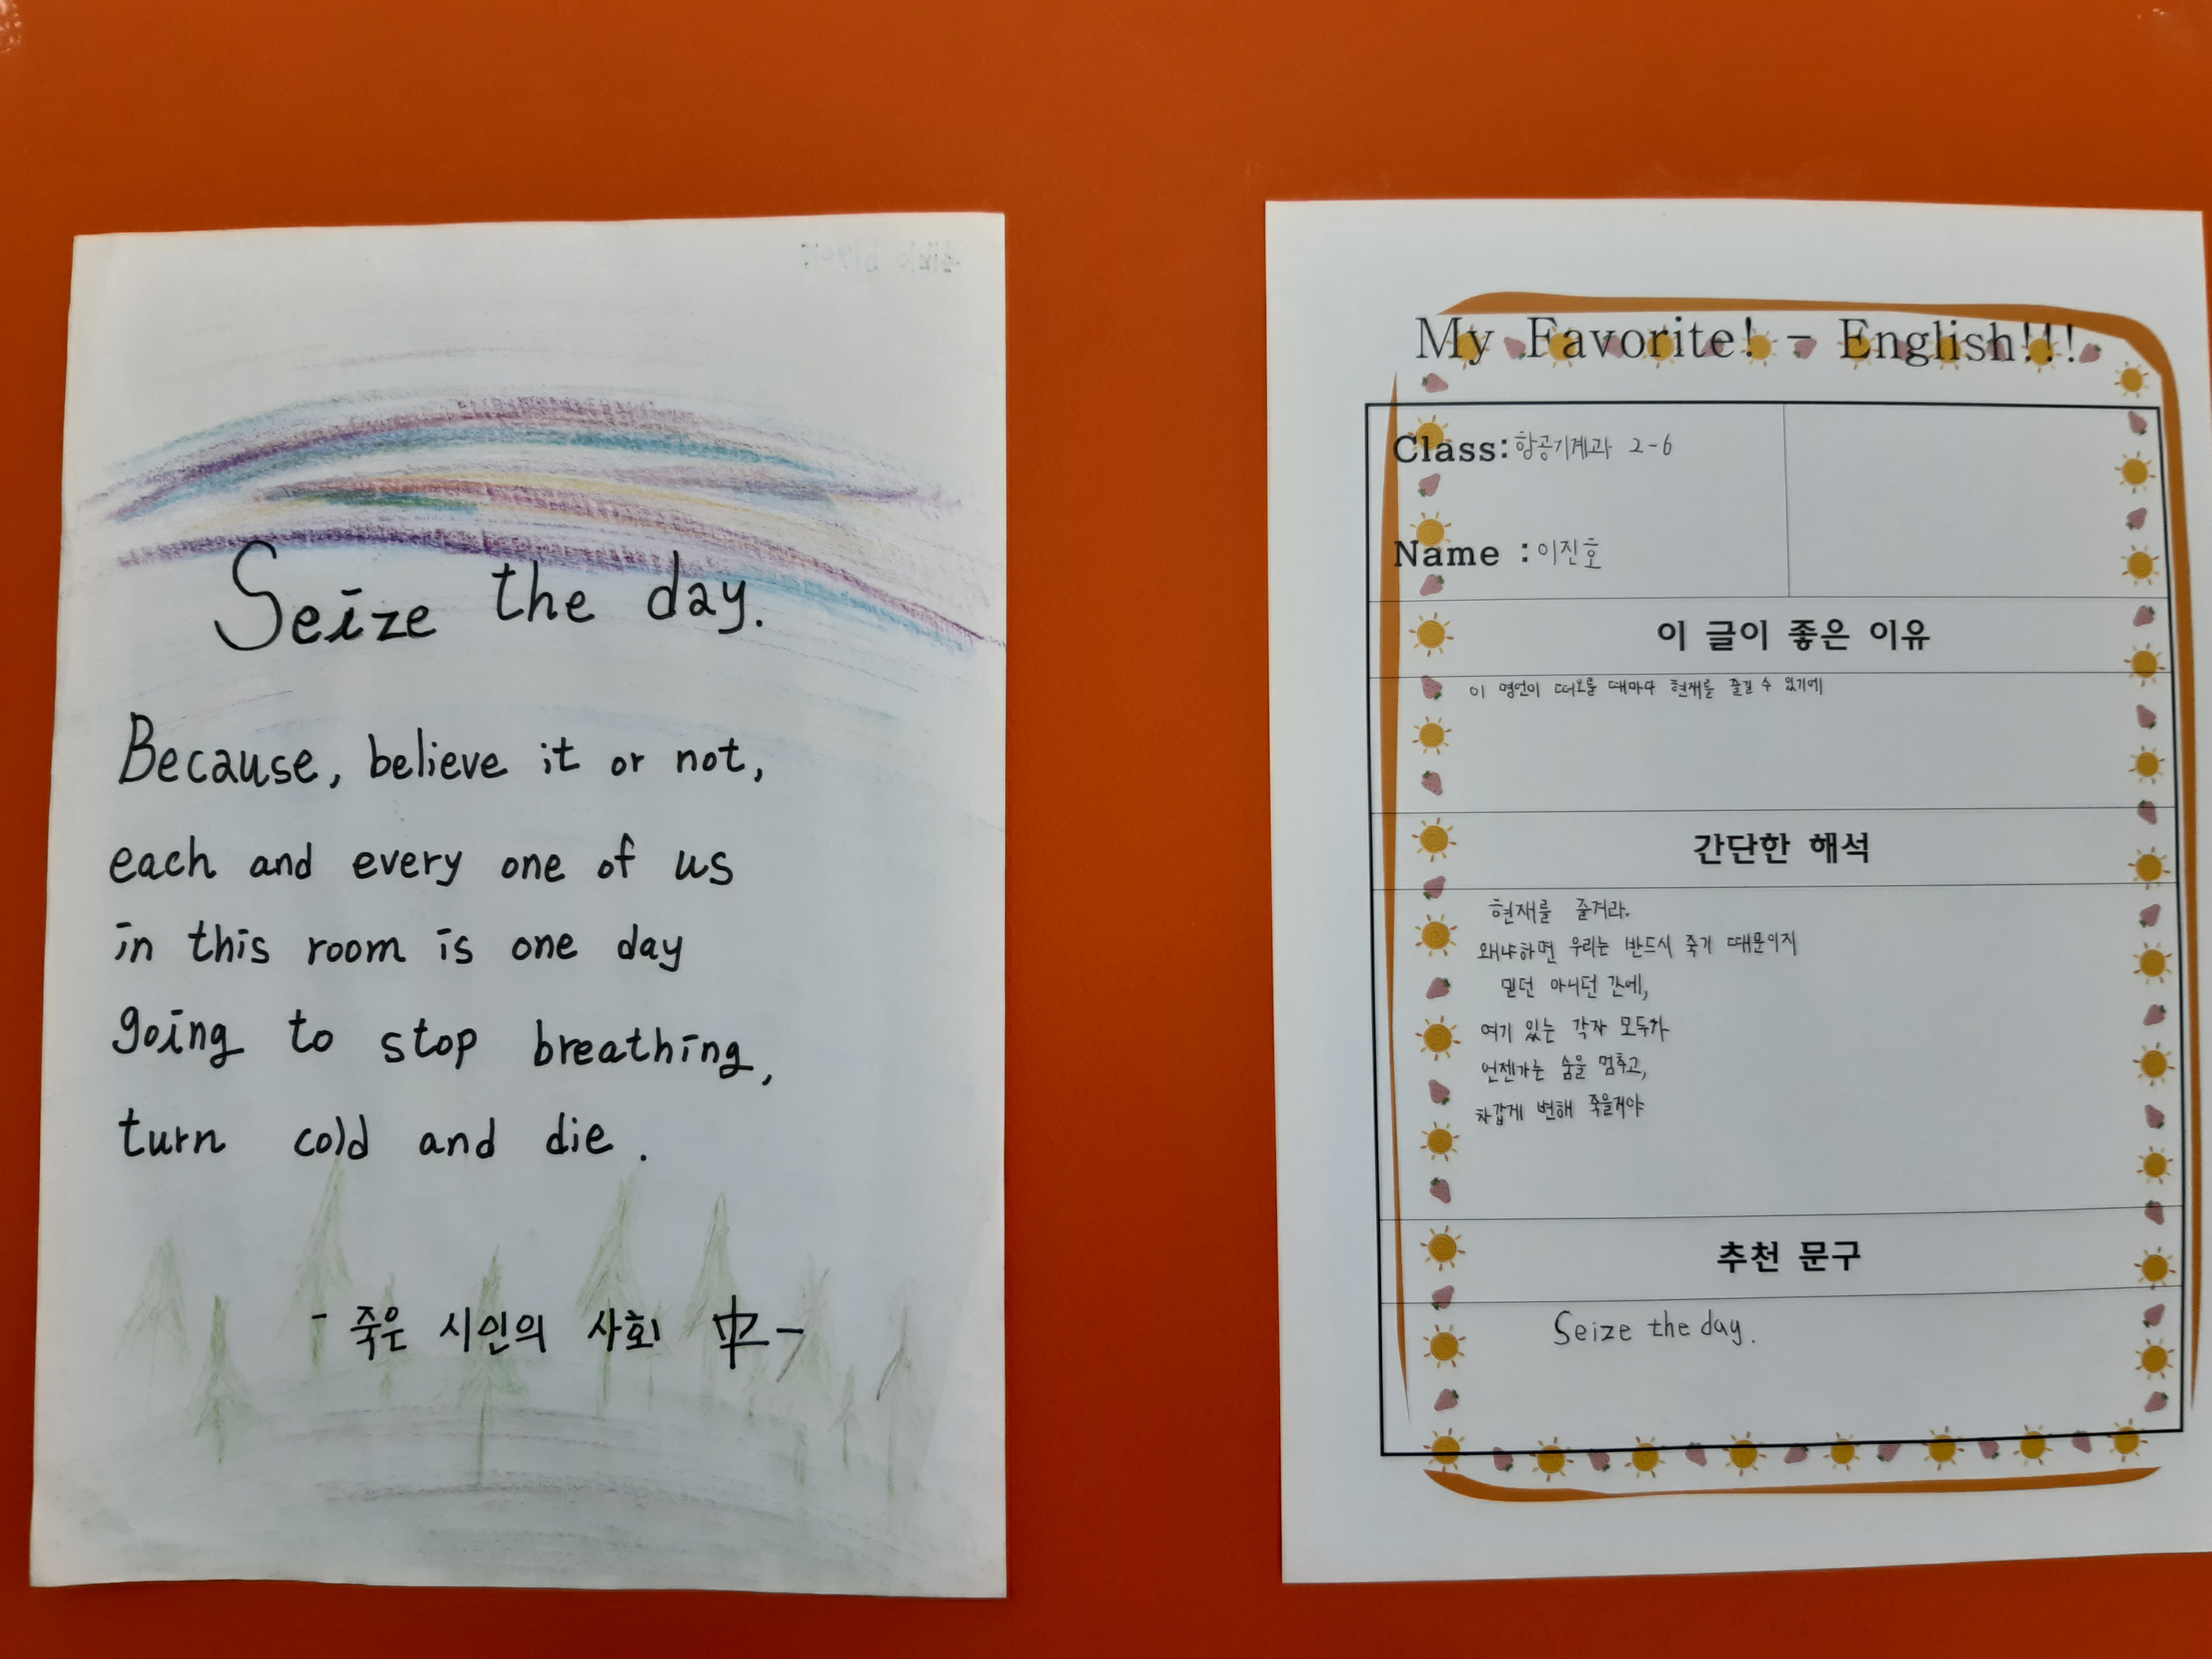 Seize the day.
Because, believe it or not,
each and every one of us
in this room is one day
going to stop breathing,
turn cold and die.
- 죽은 시인의 사회 中-
My Favorite! - English!!!
Class: 항공기계과 2-6
Name : 이진호
이 글이 좋은 이유
이 명언이 떠오를 때마다 현재를 즐길 수 있기에
간단한 해석
현재를 즐겨라.
왜냐하면 우리는 반드시 죽기 때문이지
믿던 아니던 간에,
여기 있는 각자 모두가
언젠가는 숨을 멈추고,
차갑게 변해 죽을거야
추천 문구
Seize the day.